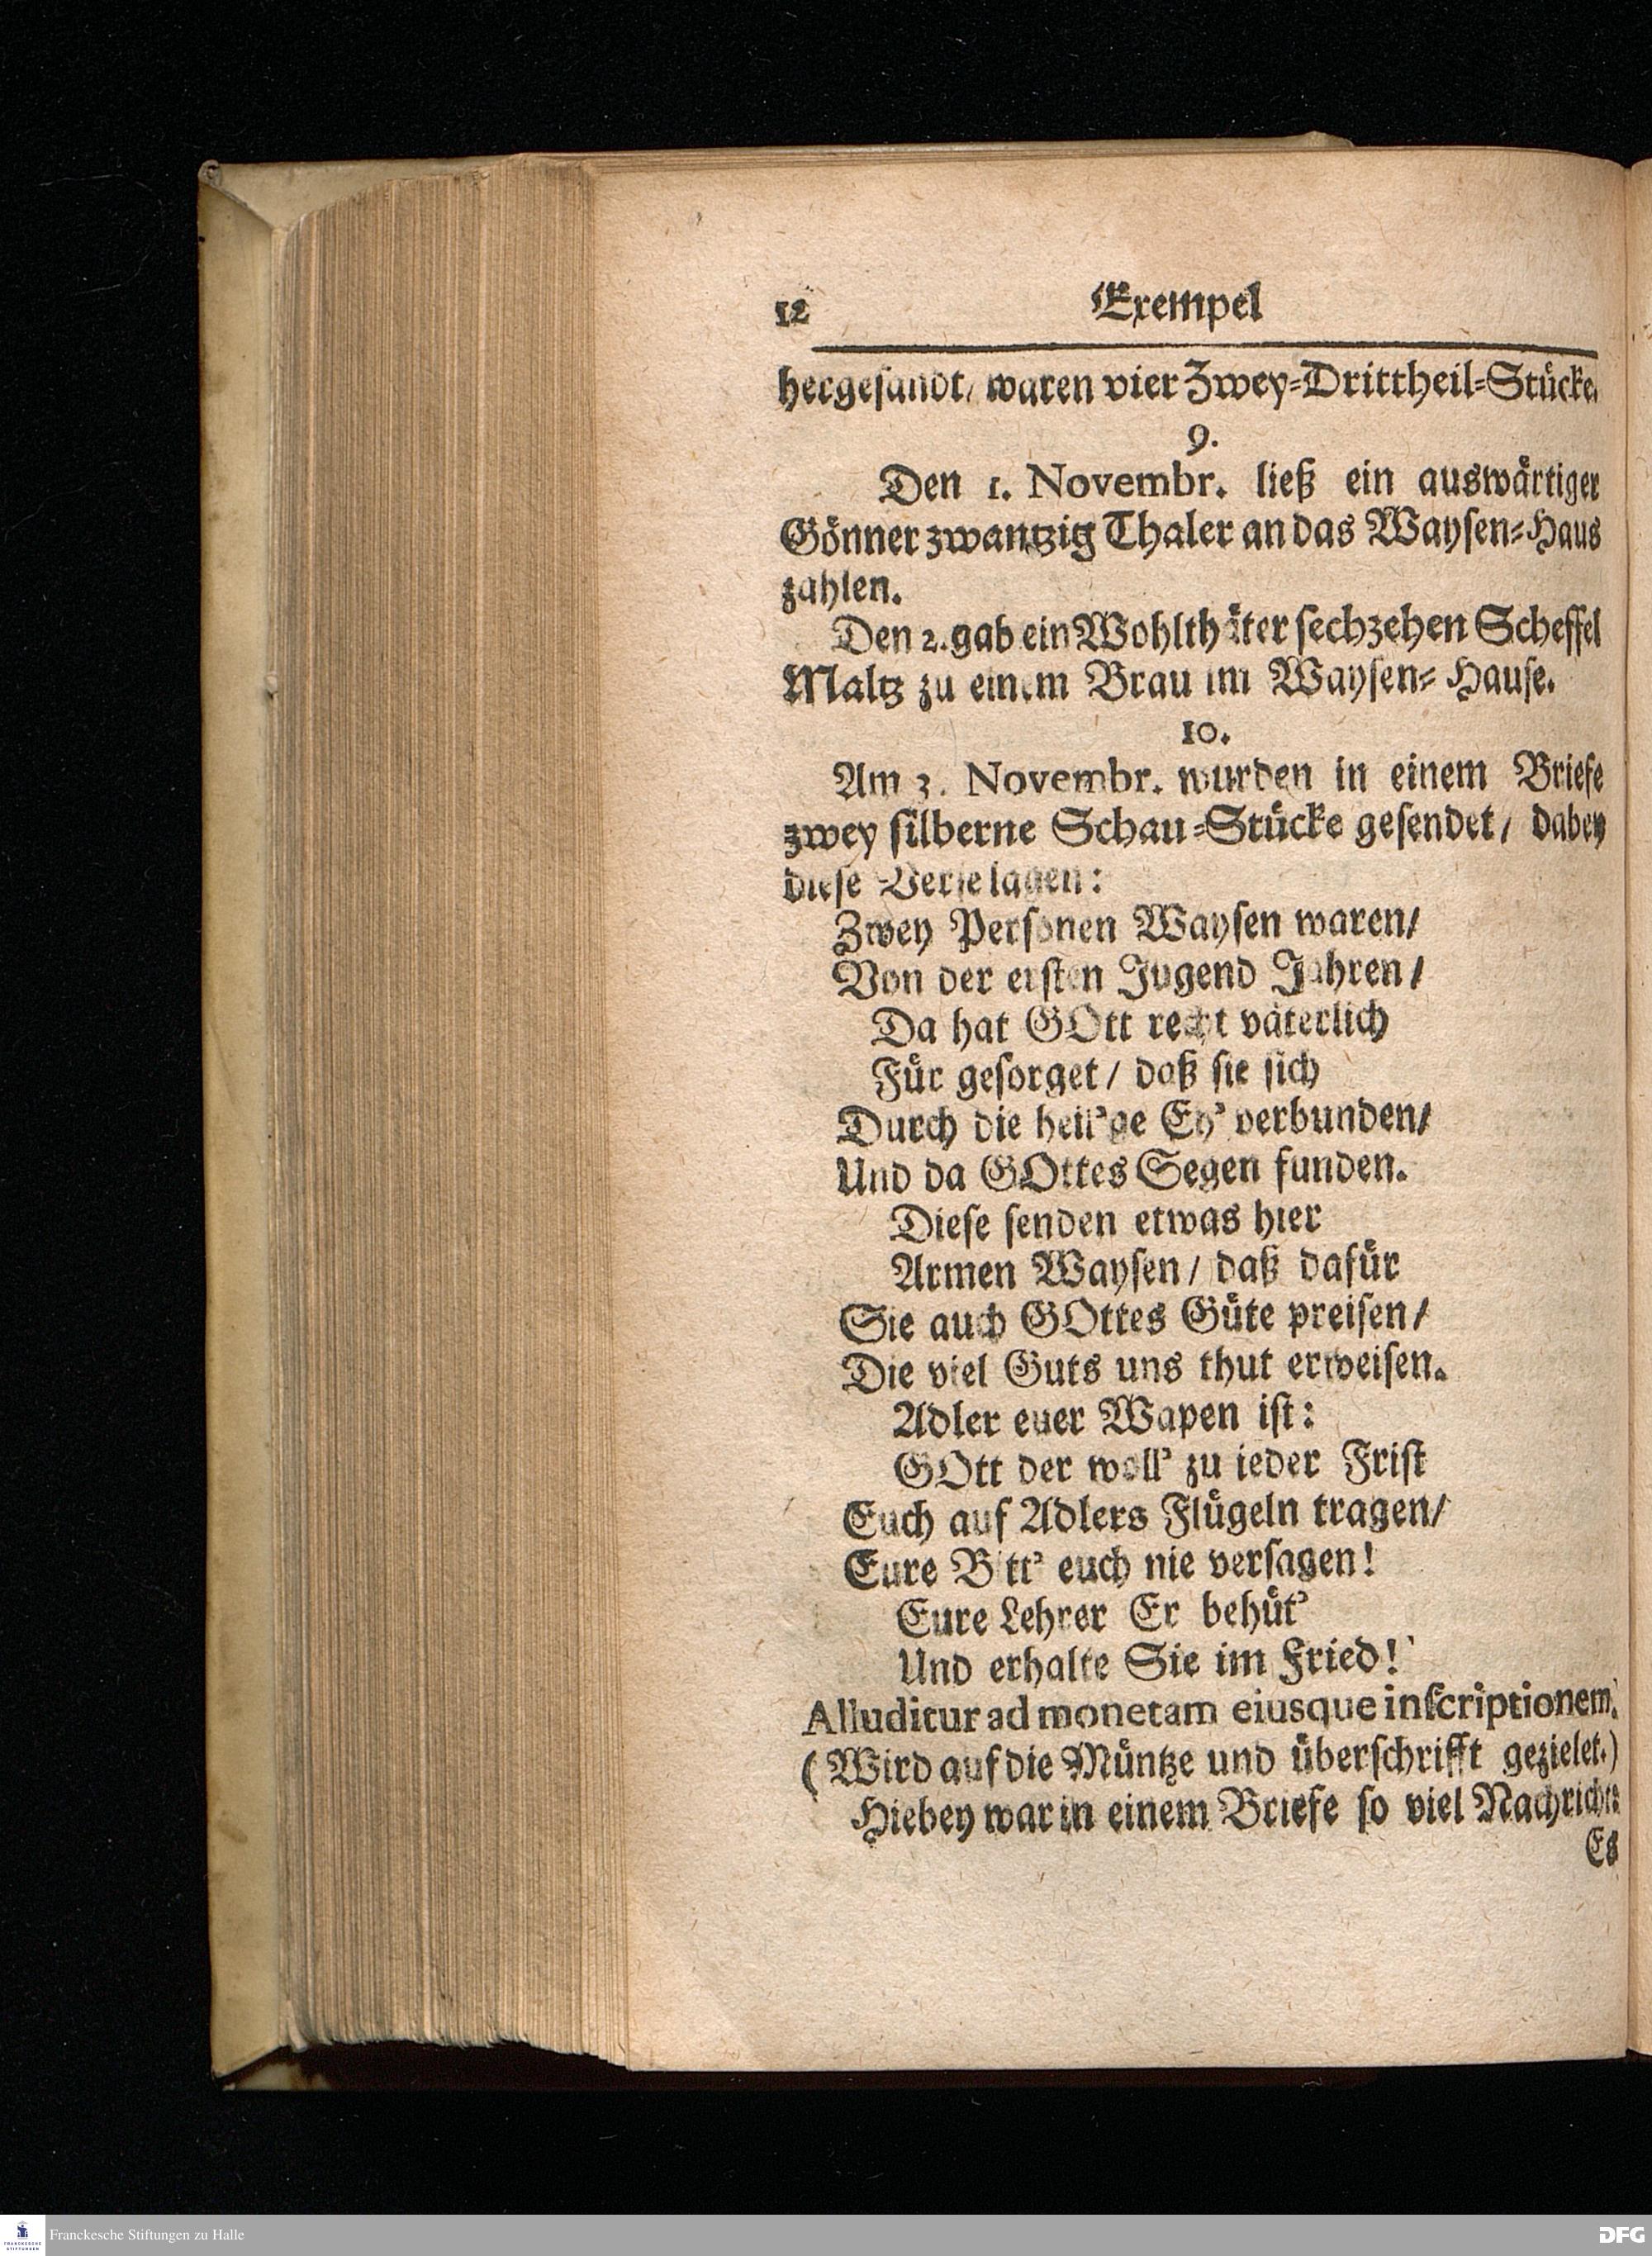 12 Exempel
hergesandt/ waren vier Zwey-Drittheil-Stücke.
9.
Den 1. Novembr. ließ ein auswärtiger
Gönner zwantzig Thaler an das Waysen-Haus
zahlen.
Den 2. gab ein Wohlthäter sechzehen Scheffel
Maltz zu einem Brau im Waysen-Hause.
10.
Am 3. Novembr. wurden in einem Briefe
zwey silberne Schau-Stücke gesendet/ dabey
diese Verse lagen:
Zwey Personen Waysen waren/
Von der ersten Jugend Jahren/
Da hat GOtt recht väterlich
Für gesorget/ daß sie sich
Durch die heil'ge Eh' verbunden/
Und da GOttes Segen funden.
Diese senden etwas hier
Armen Waysen/ daß dafür
Sie auch GOttes Güte preisen/
Die viel Guts uns thut erweisen.
Adler euer Wapen ist:
GOtt der woll' zu ieder Frist
Euch auf Adlers Flügeln tragen/
Eure Bitt' euch nie versagen!
Eure Lehrer Er behüt'
Und erhalte Sie im Fried!
Alluditur ad monetam eiusque inscriptionem.
(Wird auf die Müntze und überschrifft gezielet.)
Hiebey war in einem Briefe so viel Nachricht:
Es
FRANCKESCHE STIFTUNGEN
Franckesche Stiftungen zu Halle
DFG